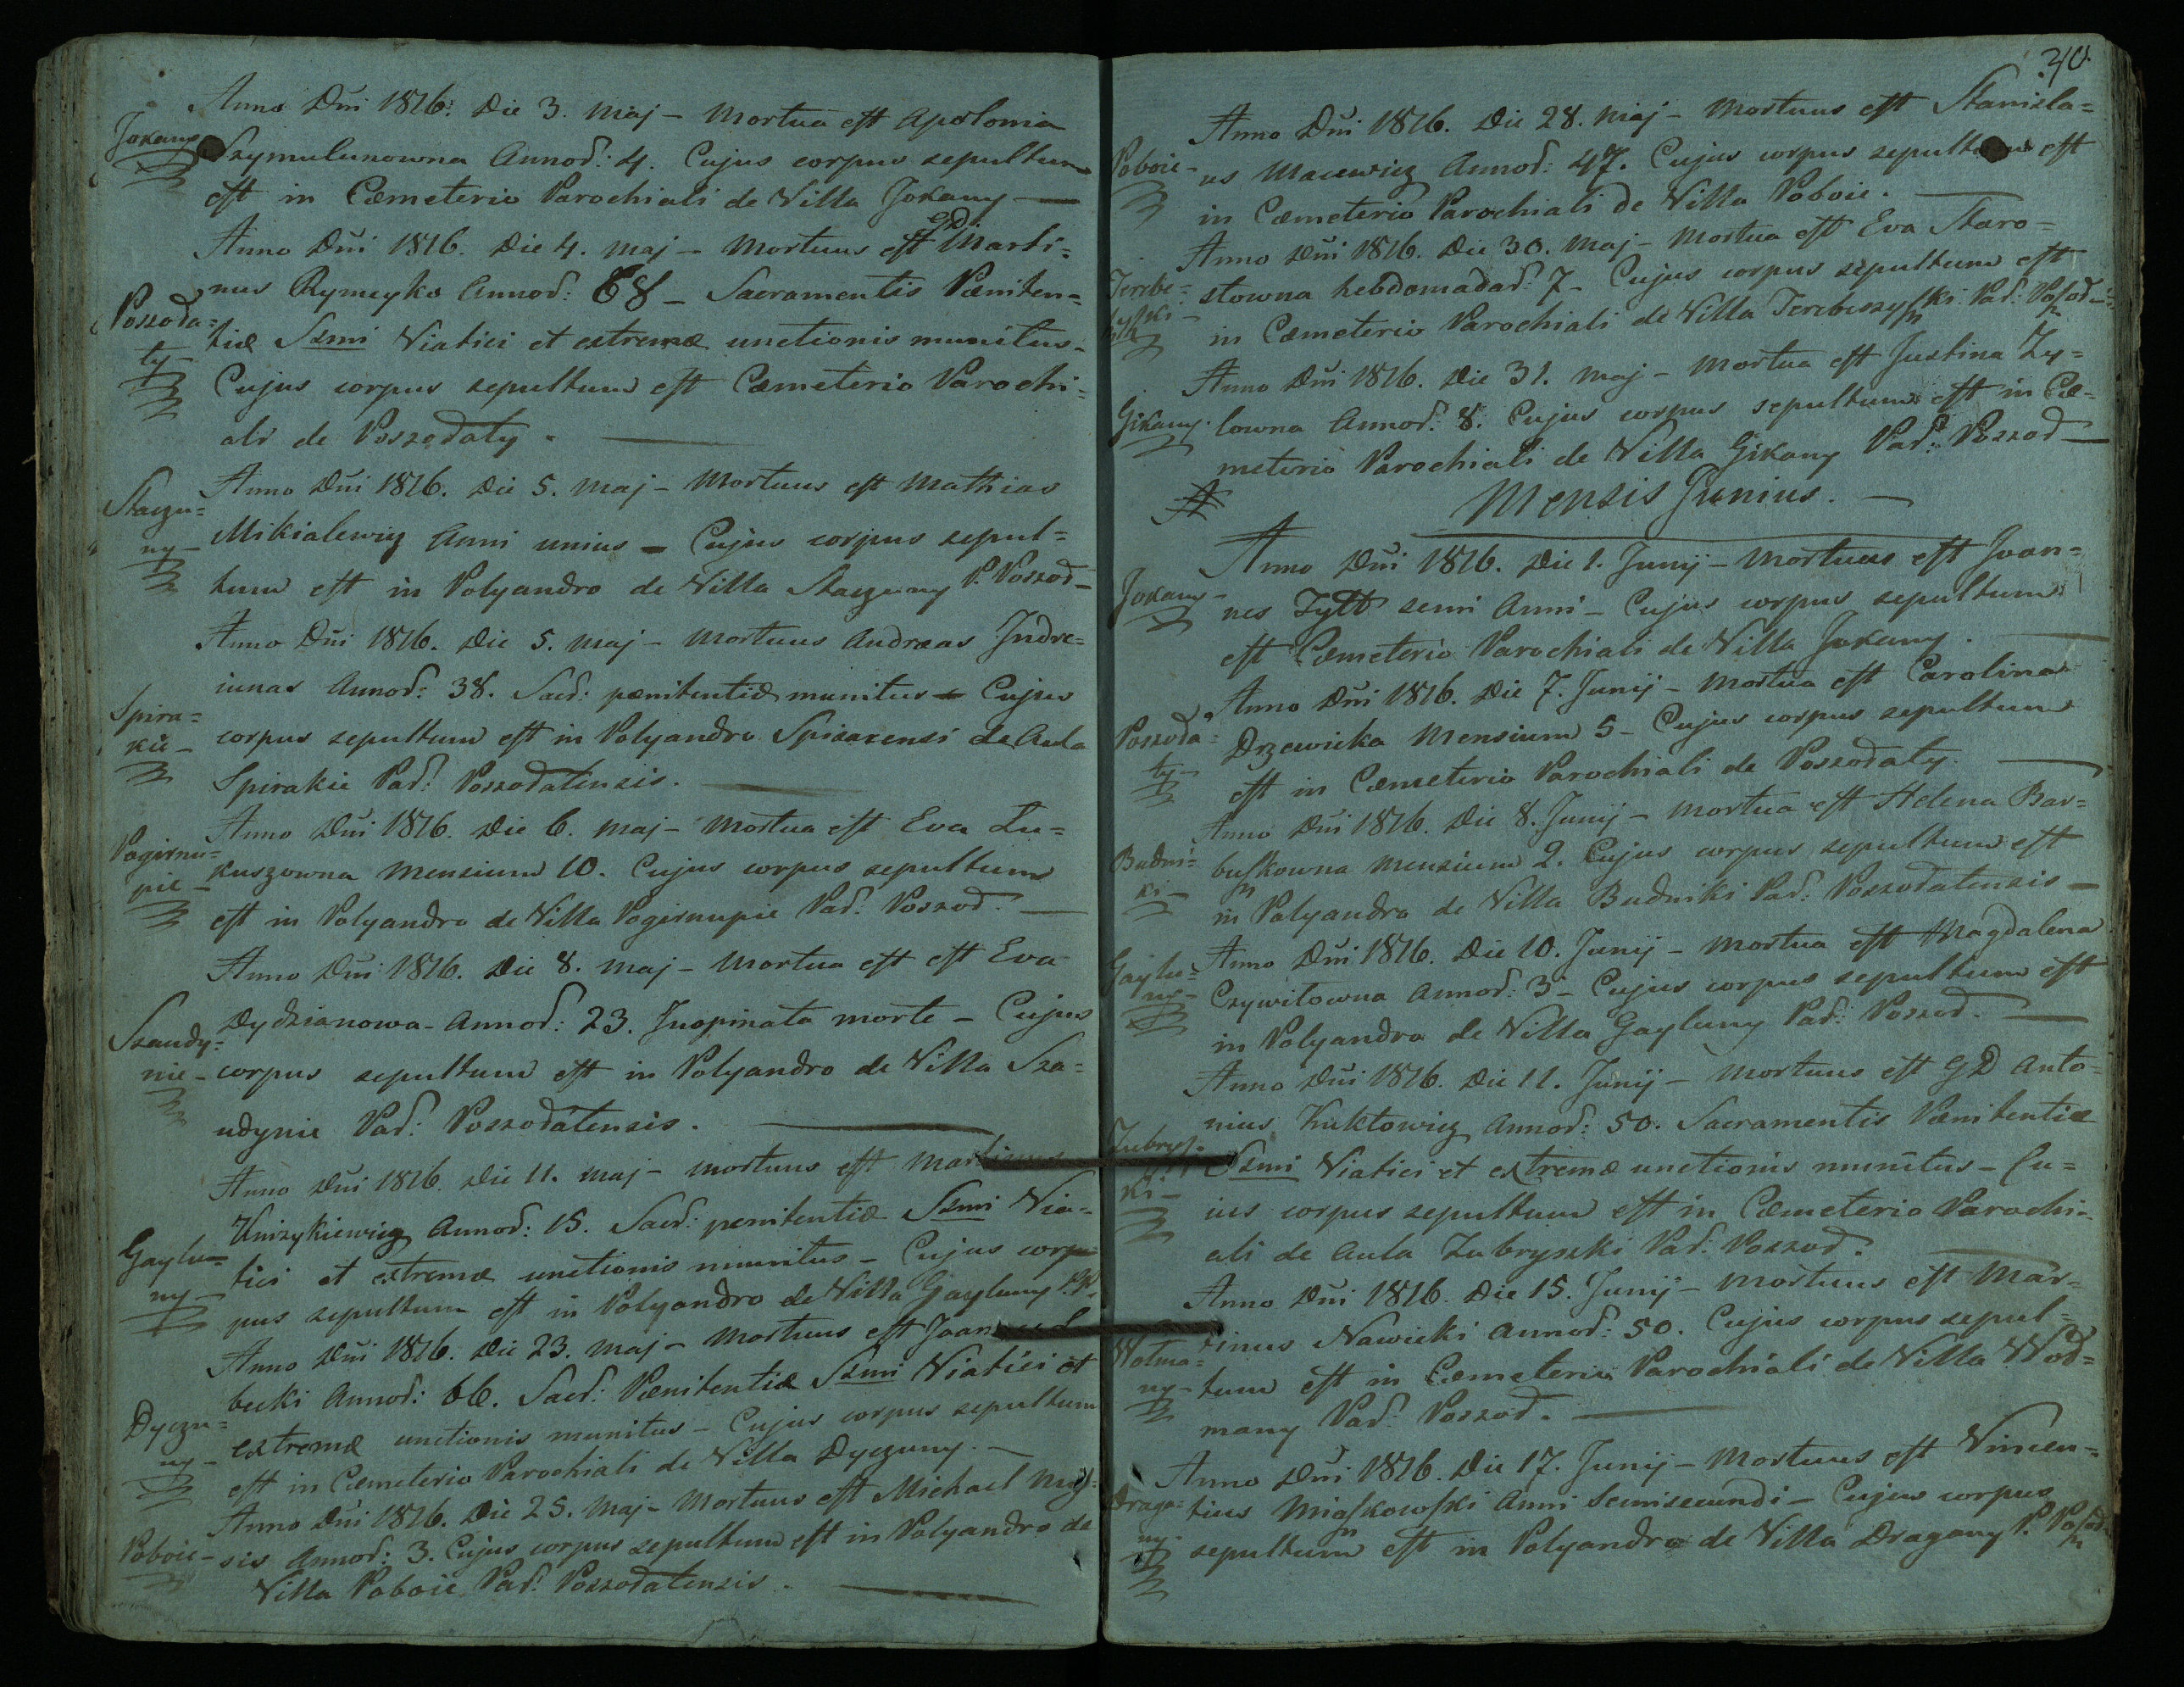 Anno Dñi 1816: Die 3. Maj - Mortua est Apolonia
Jokany
Szymulunowna Annoꝝ: 4. Cujus corpus sepultum
est in Cæmeterio Parochiali de Villa Jokany —
Anno Dñi 1816. Die 4. Maj - Mortuus est GD Marti=
nus Rymeyko Annoꝝ: 68 - Sacramentis Pæniten=
Poszoda=
ty -
tiæ Szmi Viatici et extremæ unctionis munitus -
Cujus corpus sepultum est Cæmeterio Parochi=
ali de Poszodaty.
Anno Dñi 1816. Die 5. Maj - Mortuus est Mathias
Staczu=
ny -
Mikialewicz Anni unius - Cujus corpus sepul=
tum est in Polyandro de Villa Staczuny P. Poszod -
Anno Dñi 1816. Die 5. Maj - Mortuus Andræas Indre=
iunas Annoꝝ: 38. Sacꝝ: pænitentiæ munitus - Cujus
Spira=
kie -
corpus sepultum est in Polyandro Spirakensi de Aula
Spirakie Paꝝ: Poszodatensis.
Anno Dñi 1816. Die 6. Maj - Mortua est Eva Lu=
Pogirnu=
pie -
kuszowna Mensium 10. Cujus corpus sepultum
est in Polyandro de Villa Pogirnupie Paꝝ: Poszod. —
Anno Dñi 1816. Die 8. Maj - Mortua est est Eva
Dydzianowa - Annoꝝ: 23. Inopinata morte - Cujus
Szaudy=
nie -
corpus sepultum est in Polyandro de Villa Sza=
udynie Paꝝ: Poszodatensis.
Anno Dñi 1816. Die 11. Maj - mortuus est Martinus
Knizykiewicz Annoꝝ: 15. Sacꝝ: penitentiæ Szmi Via=
Gaylu=
ny -
tici et extremæ unctionis munitus - Cujus corp=
pus sepultum est in Polyandro de Villa Gayluny P.P.
Anno Dñi 1816. Die 23. Maj - Mortuus est Joannes
becki Annoꝝ: 66. Sacꝝ: Pænitentiæ Szmi Viatici et
Dyczu=
ny -
extremæ unctionis munitus - Cujus corpus sepultum
est in Cæmeterio Parochiali de Villa Dyczuny. -
Anno Dñi 1816. Die 25. Maj - Mortuus est Michael
Poboie -
sis Annoꝝ: 3. Cujus corpus sepultum est in Polyandro de
Villa Poboie Paꝝ: Poszodatensis.
Anno Dñi 1816. Die 28. Maj - Mortuus est Stanisla=
Poboie -
us Macewicz Annoꝝ: 47. Cujus corpus sepultum est
in Cæmeterio Parochiali de Villa Poboie.
Anno Dñi 1816. Die 30. Maj - Mortua est Eva Staro=
Terebe=
stowna hebdomadaꝝ: 7 - Cujus corpus sepultum est
in Cæmeterio Parochiali de Villa Terebeszyszki Paꝝ: Poszod -
Anno Dñi 1816. Die 31. Maj - Mortua est Justina Zy=
Gikany.
lowna Annoꝝ: 8. Cujus corpus sepultum est in Cæ=
meterio Parochiali de Villa Gikany Paꝝ: Poszod —
Mensis Junius. —
Anno Dñi 1816. Die 1. Junij - Mortuus est Joan=
Jokany -
nes Zylt semi Anni - Cujus corpus sepultum
est Cæmeterio Parochiali de Villa Jokany.
Anno Dñi 1816. Die 7. Junij - Mortua est Carolina
Poszoda=
ty -
Drzewicka Mensium 5 - Cujus corpus sepultum
est in Cæmeterio Parochiali de Poszodaty.
Anno Dñi 1816. Die 8. Junij - Mortua est Helena Bar=
Budni=
ki -
buszkowna Mensium 2. Cujus corpus sepultum est
in Polyandro de Villa Budniki Paꝝ: Poszodatensis -
Anno Dñi 1816. Die 10. Junij - Mortua est Magdalena
Gaylu=
ny -
Czywilowna Annoꝝ: 3 - Cujus corpus sepultum est
in Polyandro de Villa Gayluny Paꝝ: Poszod.
Anno Dñi 1816. Die 11. Junij - Mortuus est GD Anto=
nius Kuktowicz Annoꝝ: 50. Sacramentis Pænitentiæ
ki -
Szmi Viatici et extremæ unctionis munitus - Cu=
ius corpus sepultum est in Cæmeterio Parochi=
ali de Aula Zubryszki Paꝝ: Poszod.
Anno Dñi 1816. Die 15. Junij - Mortuus est Mar=
Wotma=
ny -
tinus Nawicki Annoꝝ: 50. Cujus corpus sepul=
tum est in Cæmeterio Parochiali de Villa Wod=
many Paꝝ: Poszod.
Anno Dñi 1816. Die 17. Junij - Mortuus est Vincen=
Draga=
ny -
tius Miaszkowski Anni Semisecundi - Cujus corpus
sepultum est in Polyandro de Villa Dragany P. Poszod